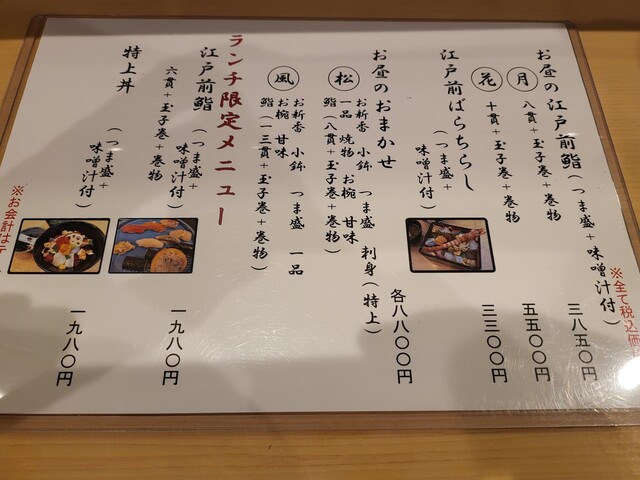 ※全て税込価
お昼の江戸前鮨(つま盛+味噌汁付)
月 八貫+玉子巻+巻物 三八五〇円
花 十貫+玉子巻+巻物 五五〇〇円
江戸前ばらちらし
(つま盛+味噌汁付) 三三〇〇円
お昼のおまかせ 各八八〇〇円
松 お新香 小鉢 つま盛 刺身(特上)
一品 焼物 お椀 甘味
鮨(八貫+玉子巻+巻物)
風 お新香 小鉢 つま盛 一品
お椀 甘味
鮨(一三貫+玉子巻+巻物)
ランチ限定メニュー
江戸前鮨(つま盛+
味噌汁付)
六貫+玉子巻+巻物 一九八〇円
特上丼(つま盛+
味噌汁付) 一九八〇円
※お会計はテ